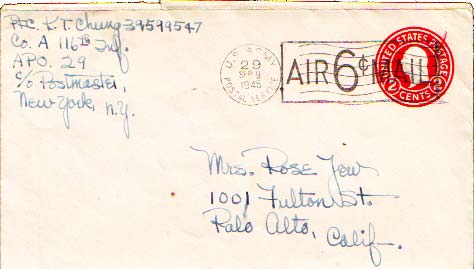 Pfc. K. T. Chung 39599547
Co. A 116th Inf.
APO. 29
c/o Postmaster,
New York, N.Y.
U.S. ARMY
29
SEP 9
1945
POSTAL SERVICE
AIR 6¢ MAIL
UNITED STATES POSTAGE
2 CENTS 2
Mrs. Rose Yew
1001 Fulton St.
Palo Alto, Calif.